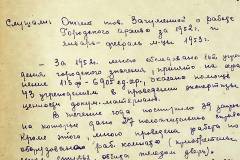 Слушали: Отчет тов. Загуменной о работе
Городского архива за 1952 г. и
январь-февраль м-цы 1953 г.
- За 1952. мною обследовано 162 учреж
дения городского значения, принято на хране
ние 6905 ед. хр., оказано помощи
учреждениям в проведении экспертизы
ценности докум. материалов.
В течение года поступило запро
на которые дано положительных справок
Кроме этого мною проведена работа по
оборудованию раб. комнаты
железом двери)